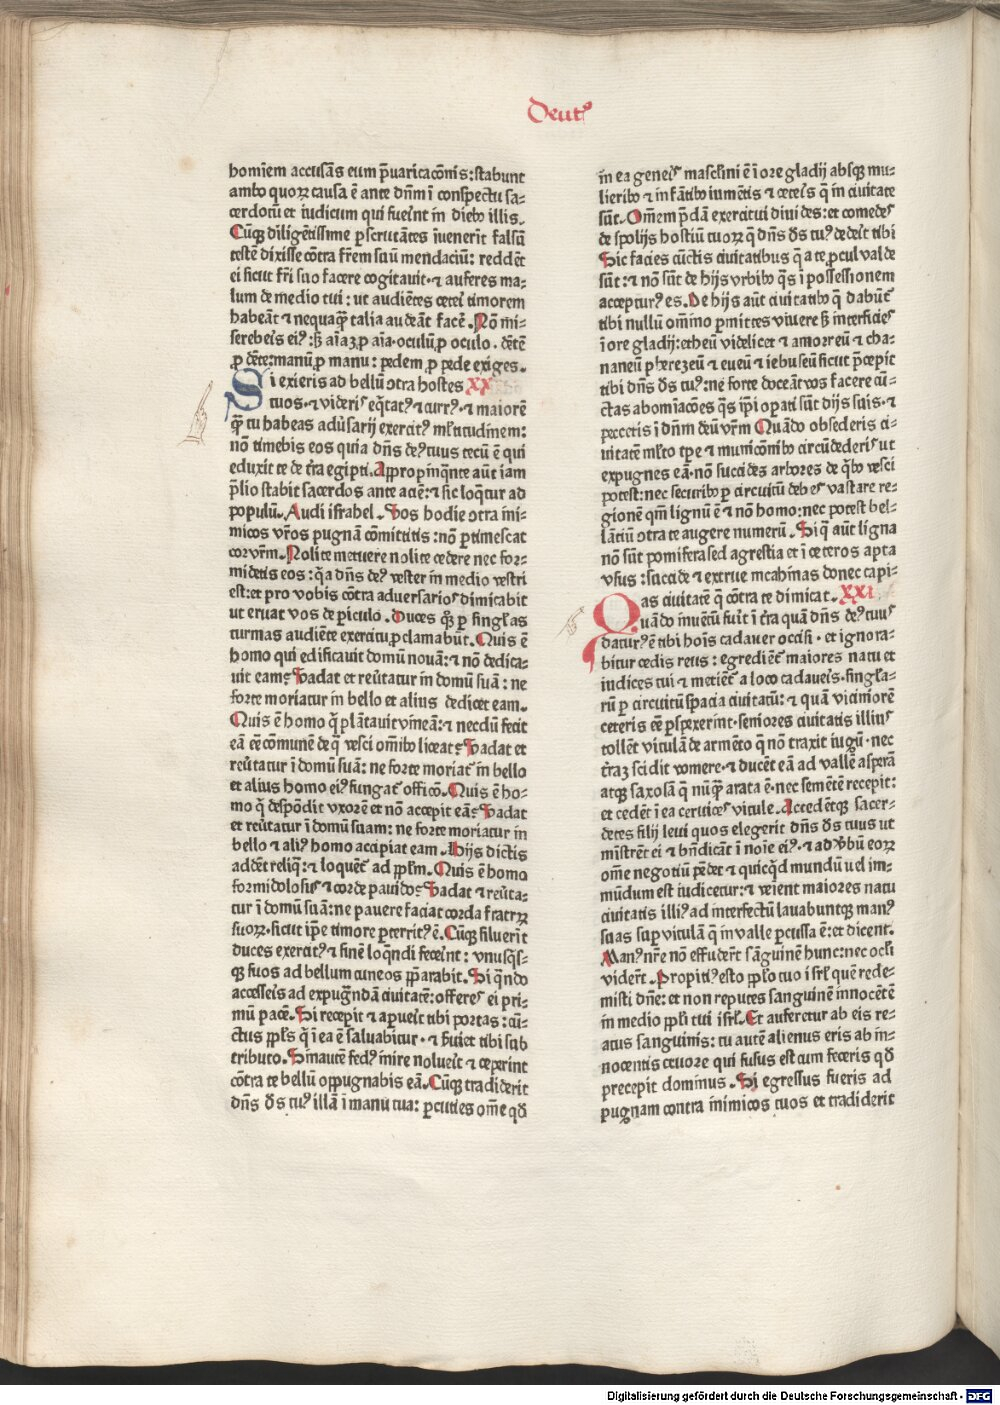 Deut⁹
homīem accusās eum p̄uaricacōnis: stabunt
ambo quoꝝ causa ē ante dn̄m ī conspectu sa⸗
cerdotū et iudicum qui fuerīt in diebꝰ illis.
Cūqꝫ diligētissime ꝑscrutātes īuenerīt falsū
testē dixisse cōtra fr̄em suū mendaciū: reddēt
ei sicut fr̄i suo facere cogitauit· ⁊ auferes ma⸗
lum de medio tui: ut audiētes ceteri timorem
habeāt ⁊ nequaqꝫ talia audeāt facē. Nō mi⸗
sereberis eiꝰ: sꝫ aīaꝫ ꝓ aīa· oculū ꝓ oculo. dētē
ꝓ dēte: manū ꝓ manu: pedem ꝓ pede exiges.
Si exieris ad bellū ↄtra hostes XX
tuos· ⁊ videris eq̇tatꝰ ⁊ currꝰ· ⁊ maiorē
qꝫ tu habeas aduersarij exercitꝰ ml̄titudinem:
nō timebis eos quia dn̄s deꝰ tuus tecū ē qui
eduxit te de t̄ra egipti. Appropinq̄nte aūt iam
p̄lio stabit sacerdos ante aciē: ⁊ sic loq̄tur ad
populū. Audi israhel. Vos hodie ↄtra ini⸗
micos vr̄os pugnā cōmittitis: nō ꝑtimescat
cor vr̄m. Nolite metuere nolite cedere nec for⸗
midetis eos: q̇a dn̄s deꝰ vester in medio vestri
est: et pro vobis cōtra adversarios dimicabit
ut eruat vos de ꝑiculo. Duces qꝫ ꝑ singl̄as
turmas audiēte exercitu ꝓclamabūt. Quis ē
homo qui edificauit domū nouā: ⁊ nō dedica⸗
uit eam? Vadat et reūtatur in domū suā: ne
forte moriatur in bello et alius dedicet eam.
Quis ē homo q̇ plātauit vineā: ⁊ necdū fecit
eā eē cōmunē de q̄ vesci om̄ibꝰ liceat? Vadat et
reūtatur ī domū suā: ne forte moriat᷑ in bello
et alius homo eiꝰ fungat᷑ officō. Quis ē ho⸗
mo q̇ despōdit vxorē et nō accepit eā? Vadat
et reūtatur ī domū suam: ne forte moriatur in
bello ⁊ aliꝰ homo accipiat eam. Hijs dictis
addēt reliq̄: ⁊ loquēt᷑ ad ppl̄m. Quis ē homo
formidolosus ⁊ corde pauido? Vadat ⁊ reūta⸗
tur ī domū suā: ne pauere faciat corda fratrꝝ
suoꝝ· sicut ip̄e timore ꝑterritꝰ ē. Cūqꝫ siluerīt
duces exercitꝰ ⁊ finē loq̄ndi fecerīt: vnusq̇s⸗
qꝫ suos ad bellum cuneos pp̄arabit. Si q̄ndo
accesseris ad expugnādā ciuitatē: offeres ei pri⸗
mū pacē. Si recepit ⁊ aꝑuerit tibi portas: cū⸗
ctus ppl̄s q̇ ī ea ē saluabitur· ⁊ s̄uiet tibi sub
tributo. Sinautē fedꝰ inire noluerīt ⁊ ceꝑrint
cōtra te bellū oppugnabis eā. Cūqꝫ tradiderit
dn̄s ds̄ tuꝰ illā ī manu tua: ꝑcuties om̄e qđ
in ea generis masclini ē ī ore gladij absqꝫ mu⸗
lieribꝰ ⁊ infātibꝰ iumētis ⁊ ceteris q̄ in ciuitate
sūt. Om̄em p̄dā exercitui diuides: et comedes
de spolijs hostiū tuoꝝ q̄ dn̄s ds̄ tuꝰ dederit tibi
Sic facies cūctis ciuitatibus q̄ a te ꝓcul valde
sūt: ⁊ nō sūt de hijs vrbibꝰ q̄s ī possessionem
accepturꝰ es. De hijs aūt ciuitatibꝰ q̄ dabūt᷑
tibi nullū om̄ino ꝑmittes viuere sꝫ interficies
ī ore gladij: etheū videlicet ⁊ amorreū ⁊ cha⸗
naneū pherezeū ⁊ eueū ⁊ iebuseū sicut p̄cepit
tibi dn̄s ds̄ tuꝰ: ne forte doceāt vos facere cū⸗
ctas abomīacōes q̄s ip̄i oꝑati sūt dijs suis· ⁊
peccetis ī dn̄m deū vr̄m Quādo obsederis ci⸗
uitatē ml̄to tꝑe ⁊ municōnibꝰ circūdederis ut
expugnes eā· nō succides arbores de q̇bꝰ vesci
potest: nec securibꝰ ꝑ circuitū debes vastare re⸗
gionē qm̄ lignū ē ⁊ nō homo: nec potest bel⸗
lātiū ↄtra te augere numerū. Si q̄ aūt ligna
nō sūt pomifera sed agrestia et ī ceteros apta
vsus: succide ⁊ extrue machinas donec capi⸗
as ciuitatē q̄ cōtra te dimicat. XXI
Quādo inuētū fuīt ī t̄ra quā dn̄s deꝰ tuus
daturꝰ ē tibi hoīs cadauer occisi· et ignora⸗
bitur cedis reus: egrediēt᷑ maiores natu et
iudices tui ⁊ metiēt᷑ a loco cadaueris· singl̄a⸗
rū ꝑ circuitū spacia ciuitatū: ⁊ quā viciniorē
ceteris eē ꝑspexerint· seniores ciuitatis illius
tollēt vitulā de armēto q̄ nō traxit iugū· nec
t̄raꝫ scidit vomere· ⁊ ducēt eā ad vallē asperā
atqꝫ saxosā q̄ nūqꝫ arata ē· nec semētē recepit:
et cedēt ī ea ceruices vitule. Accedētqꝫ sacer⸗
dotes filij leui quos elegerit dn̄s ds̄ tuus ut
ministrēt ei ⁊ bn̄dicāt ī noīe eiꝰ· ⁊ ad v̄bū eoꝝ
om̄e negotiū pēdet ⁊ quicq̇d mundū uel im⸗
mūdum est iudicetur: ⁊ veient maiores natu
ciuitatis illiꝰ ad interfectū lauabuntqꝫ manꝰ
suas suꝑ vitulā q̄ in valle ꝑcussa ē: et dicent.
Manꝰ nr̄e nō effuderūt sāguinē hunc: nec ocl̄i
viderūt. Propitiꝰ esto ppl̄o tuo isrl̄ quē rede⸗
misti dn̄e: et non reputes sanguinē innocētē
in medio ppl̄i tui isrl̄. Et auferetur ab eis re⸗
atus sanguinis: tu autē alienus eris ab in⸗
nocentis cruore qui fusus est cum feceris qđ
precepit dominus. Si egressus fueris ad
pugnam contra inimicos tuos et tradiderit
Digitalisierung gefördert durch die Deutsche Forschungsgemeinschaft - DFG